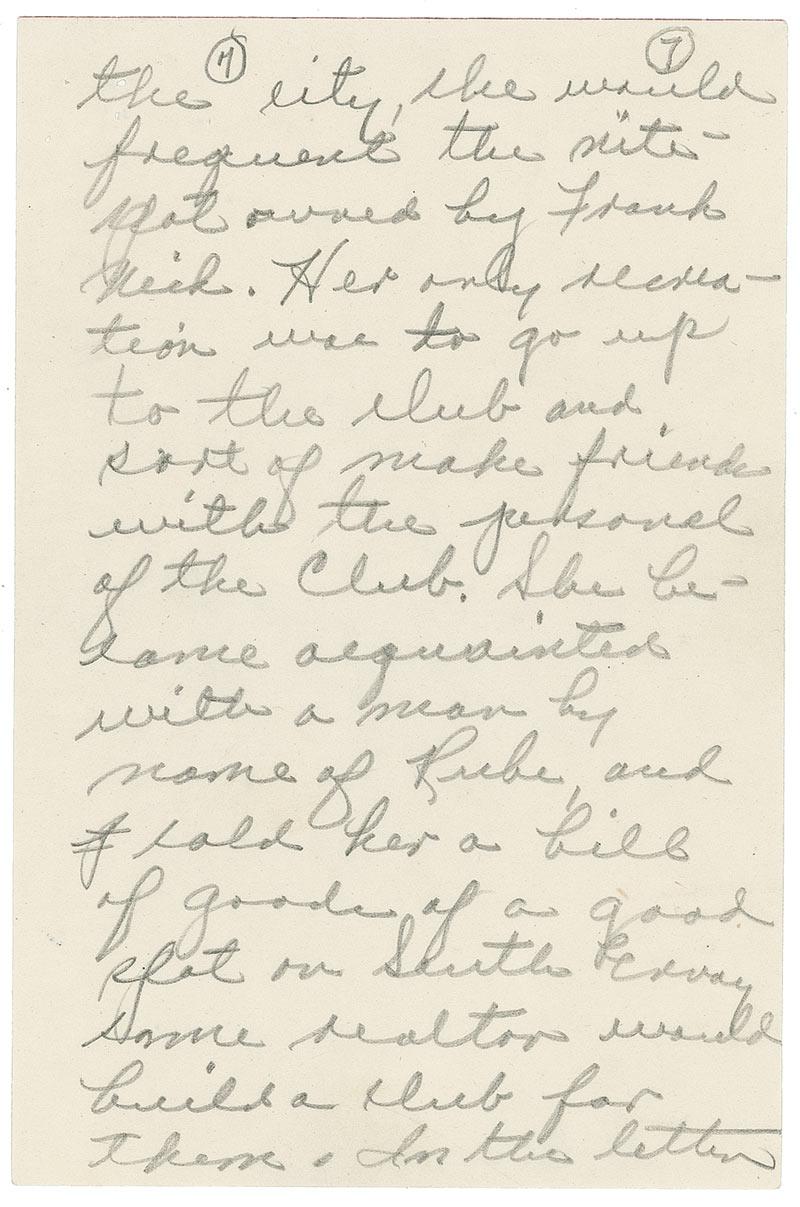 7 7
the city, she would
frequent the nite-
spot owned by Frank
Nick. Her only recrea-
tion was to go up
to the club and
sort of make friends
with the personel
of the Club. She be-
came acquainted
with a man by
name of Rube, and
I sold her a bill
of goods of a good
spot on South Ervay
some realtor would
build a club for
them. In the letter